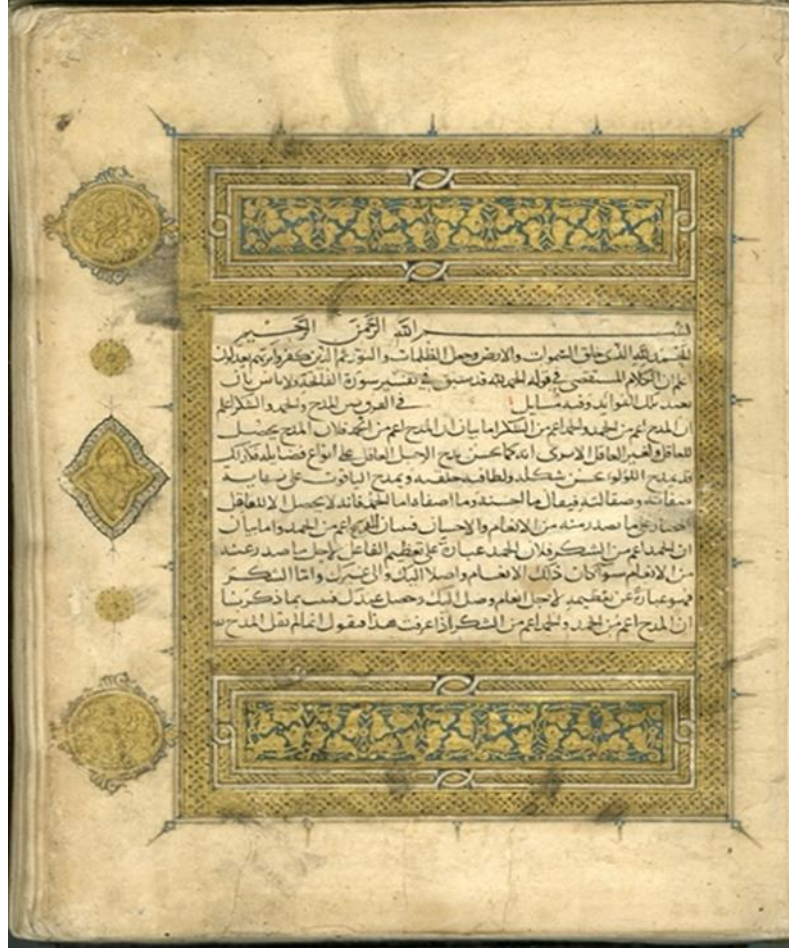 بسم الله الرحمن الرحيم
الحمد لله الذي خلق السموات والارض وجعل الظلمات والنور ثم الذين كفروا بربهم يعدلون
اعلم ان الكلام المستقصى في قوله الحمد لله قد سبق في تفسير سورة الفاتحة ولا باس بان
نعيد تلك الفوائد وفيه مسايل في الفرق بين المدح والحمد والشكر اعلم
ان المدح اعم من الحمد والحمد اعم من الشكر اما بيان ان المدح اعم من الحمد فلان المدح يحصل
للعاقل ولغير العاقل الا ترى انه كما يحسن مدح الرجل العاقل على انواع فضايله فكذلك
قد يمدح اللؤلؤ لحسن شكله ولطافة خلقته ويمدح الياقوت على نهاية
صفائه وصقالته فيقال ما احسنه وما اصفاه واما الحمد فانه لا يحصل الا للفاعل
على ما يصدر منه من الانعام والاحسان المدح اعم من الحمد واما بيان
ان الحمد اعم من الشكر فلان الحمد عبارة عن تعظيم الفاعل لاجل ما صدر عنه
من الانعام سوا كان ذلك الانعام واصلا اليك والى غيرك واما الشكر
فهو عبارة عن تعظيمه لاجل انعام وصل اليك وحصل عندك فثبت بما ذكرنا
ان المدح اعم من الحمد والحمد اعم من الشكر اذا عرفت هذا فنقول انما لم يقل المدح